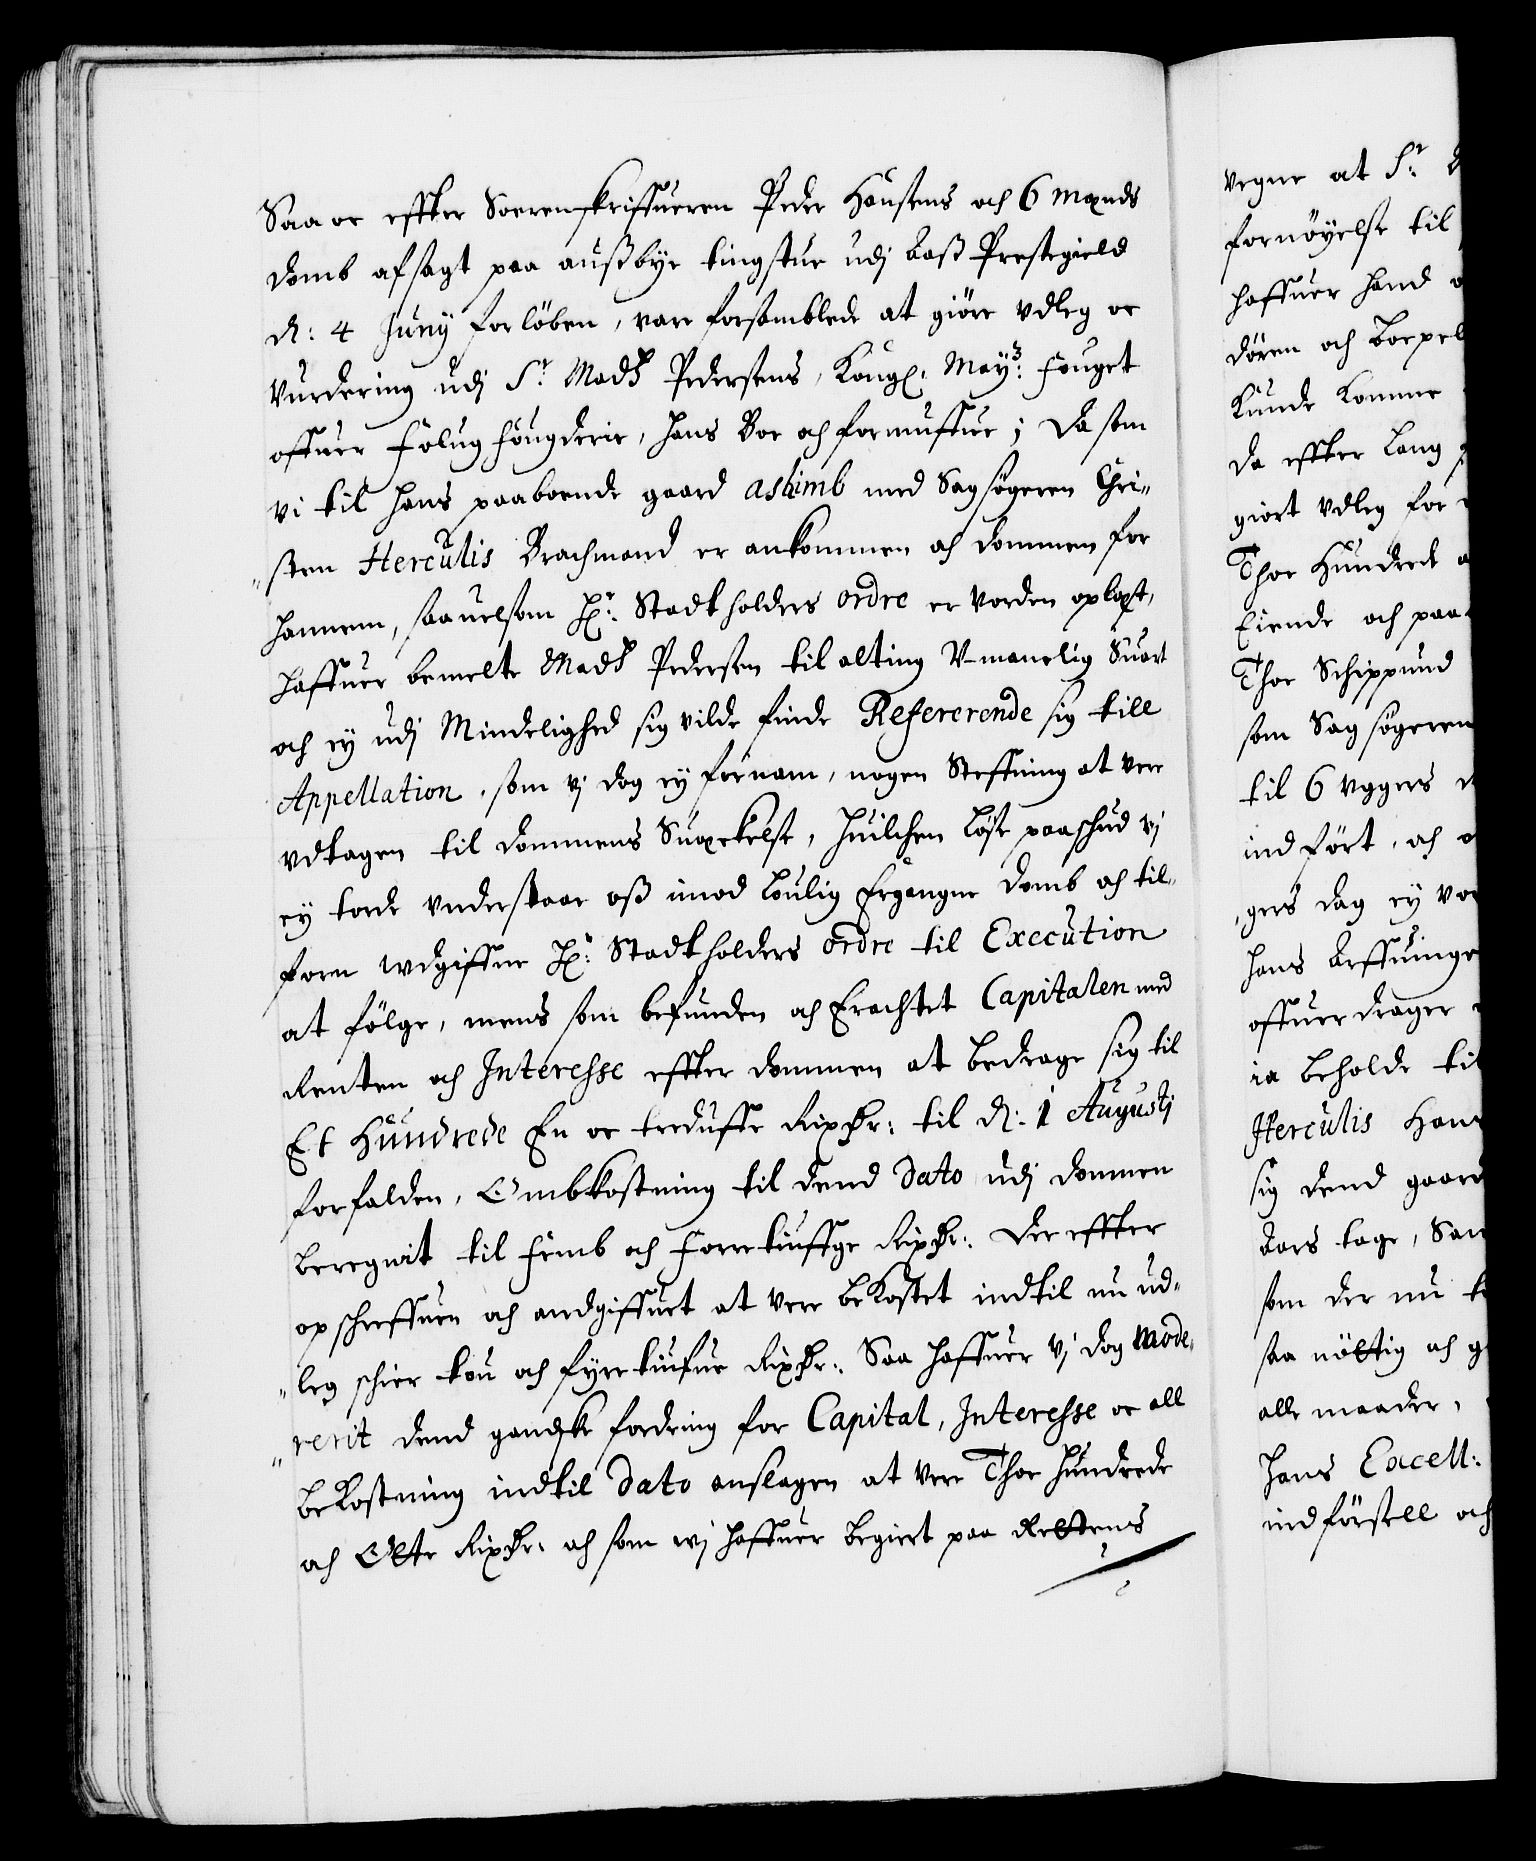 Saa oc effter Sorenskriffueren Peder Hansens och 6 Mænds
domb afsagt paa außbye tingstue udj Baß Prestegield
d: 4 Junÿ forlöben, vare forsamblede at giöre vdleg oc
Vurdering udj Sr: Madß Pedersens, Kongl: Mayß: fouget
offuer Föluge fougderie, hans Boe och formuffue; Da som
vi til hans paaboende gaard Askimb med Sagsögeren Chri-
sten Herculis Brachmand er ankommen och dommen for
hannem, saauelsom Hr: Stadtholders ordre er vorden oplæst,
haffuer bemelte Madß Pedersen til alting V-manerlig Suart
och eÿ udj Mindelighed sig vilde finde Refererende sig till
Appellation, som vj dog eÿ fornam, nogen Steffning at vere
vdtagen til dommens Suæckelse, huilchen löse paaschud vj
eÿ torde vnderstaae oß imod louligErgangne domb och til-
forn wdgiffne Hr: Stadtholders ordre til Execution
at fölge, mens som befunden och Erachtet Capitalen med
Renten och Interesse effter dommen at bedrage sig til
Et Hundrede En oc tredusse Rixdr: til d: 1 Augustj
forfalden, Ombkostning til dend dato udj dommen
beregnit til femb och forretiuffge Rixdr: Der effter
opschreffuen och andgiffuet at vere beKostet indtil nu ud-
leg scheer tou och fyrretiufue Rixdr: Saa haffuer vj dog Mode-
rerit dend gandske fordring for Capital, Interesse oc all
beKostning indtil dato anslagen at vere Thoe hundrede
och Otte Rixdr: och som wj haffuer begiert paa Rettens
vegne at Sr:
fornöyelse til
haffuer hand
dören och
Kunde komme
da effter lang
giort vdleg for
Thoe Hundrede
Eiende och paa
Thoe Schippund
som Sagsögeren
til 6 vggers
indfört, och
gers dag eÿ
hans Arffuinger
offuerdrager
ia beholde til
Herculis Hans
sig dend gaard
Aars tage,
som der nu
saa nöttig och
alle maader,
hans Excell:
indförsell och